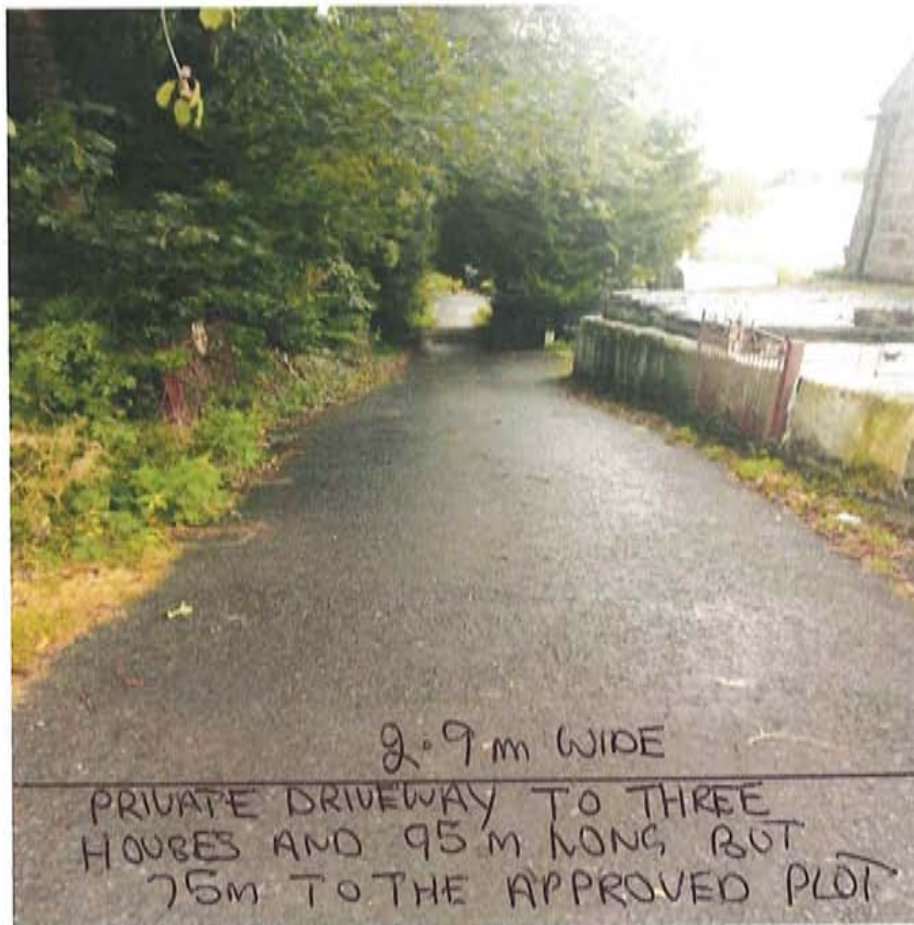 2.9m WIDE
PRIVATE DRIVEWAY TO THREE
HOUSES AND 95m LONG BUT
75m TO THE APPROVED PLOT